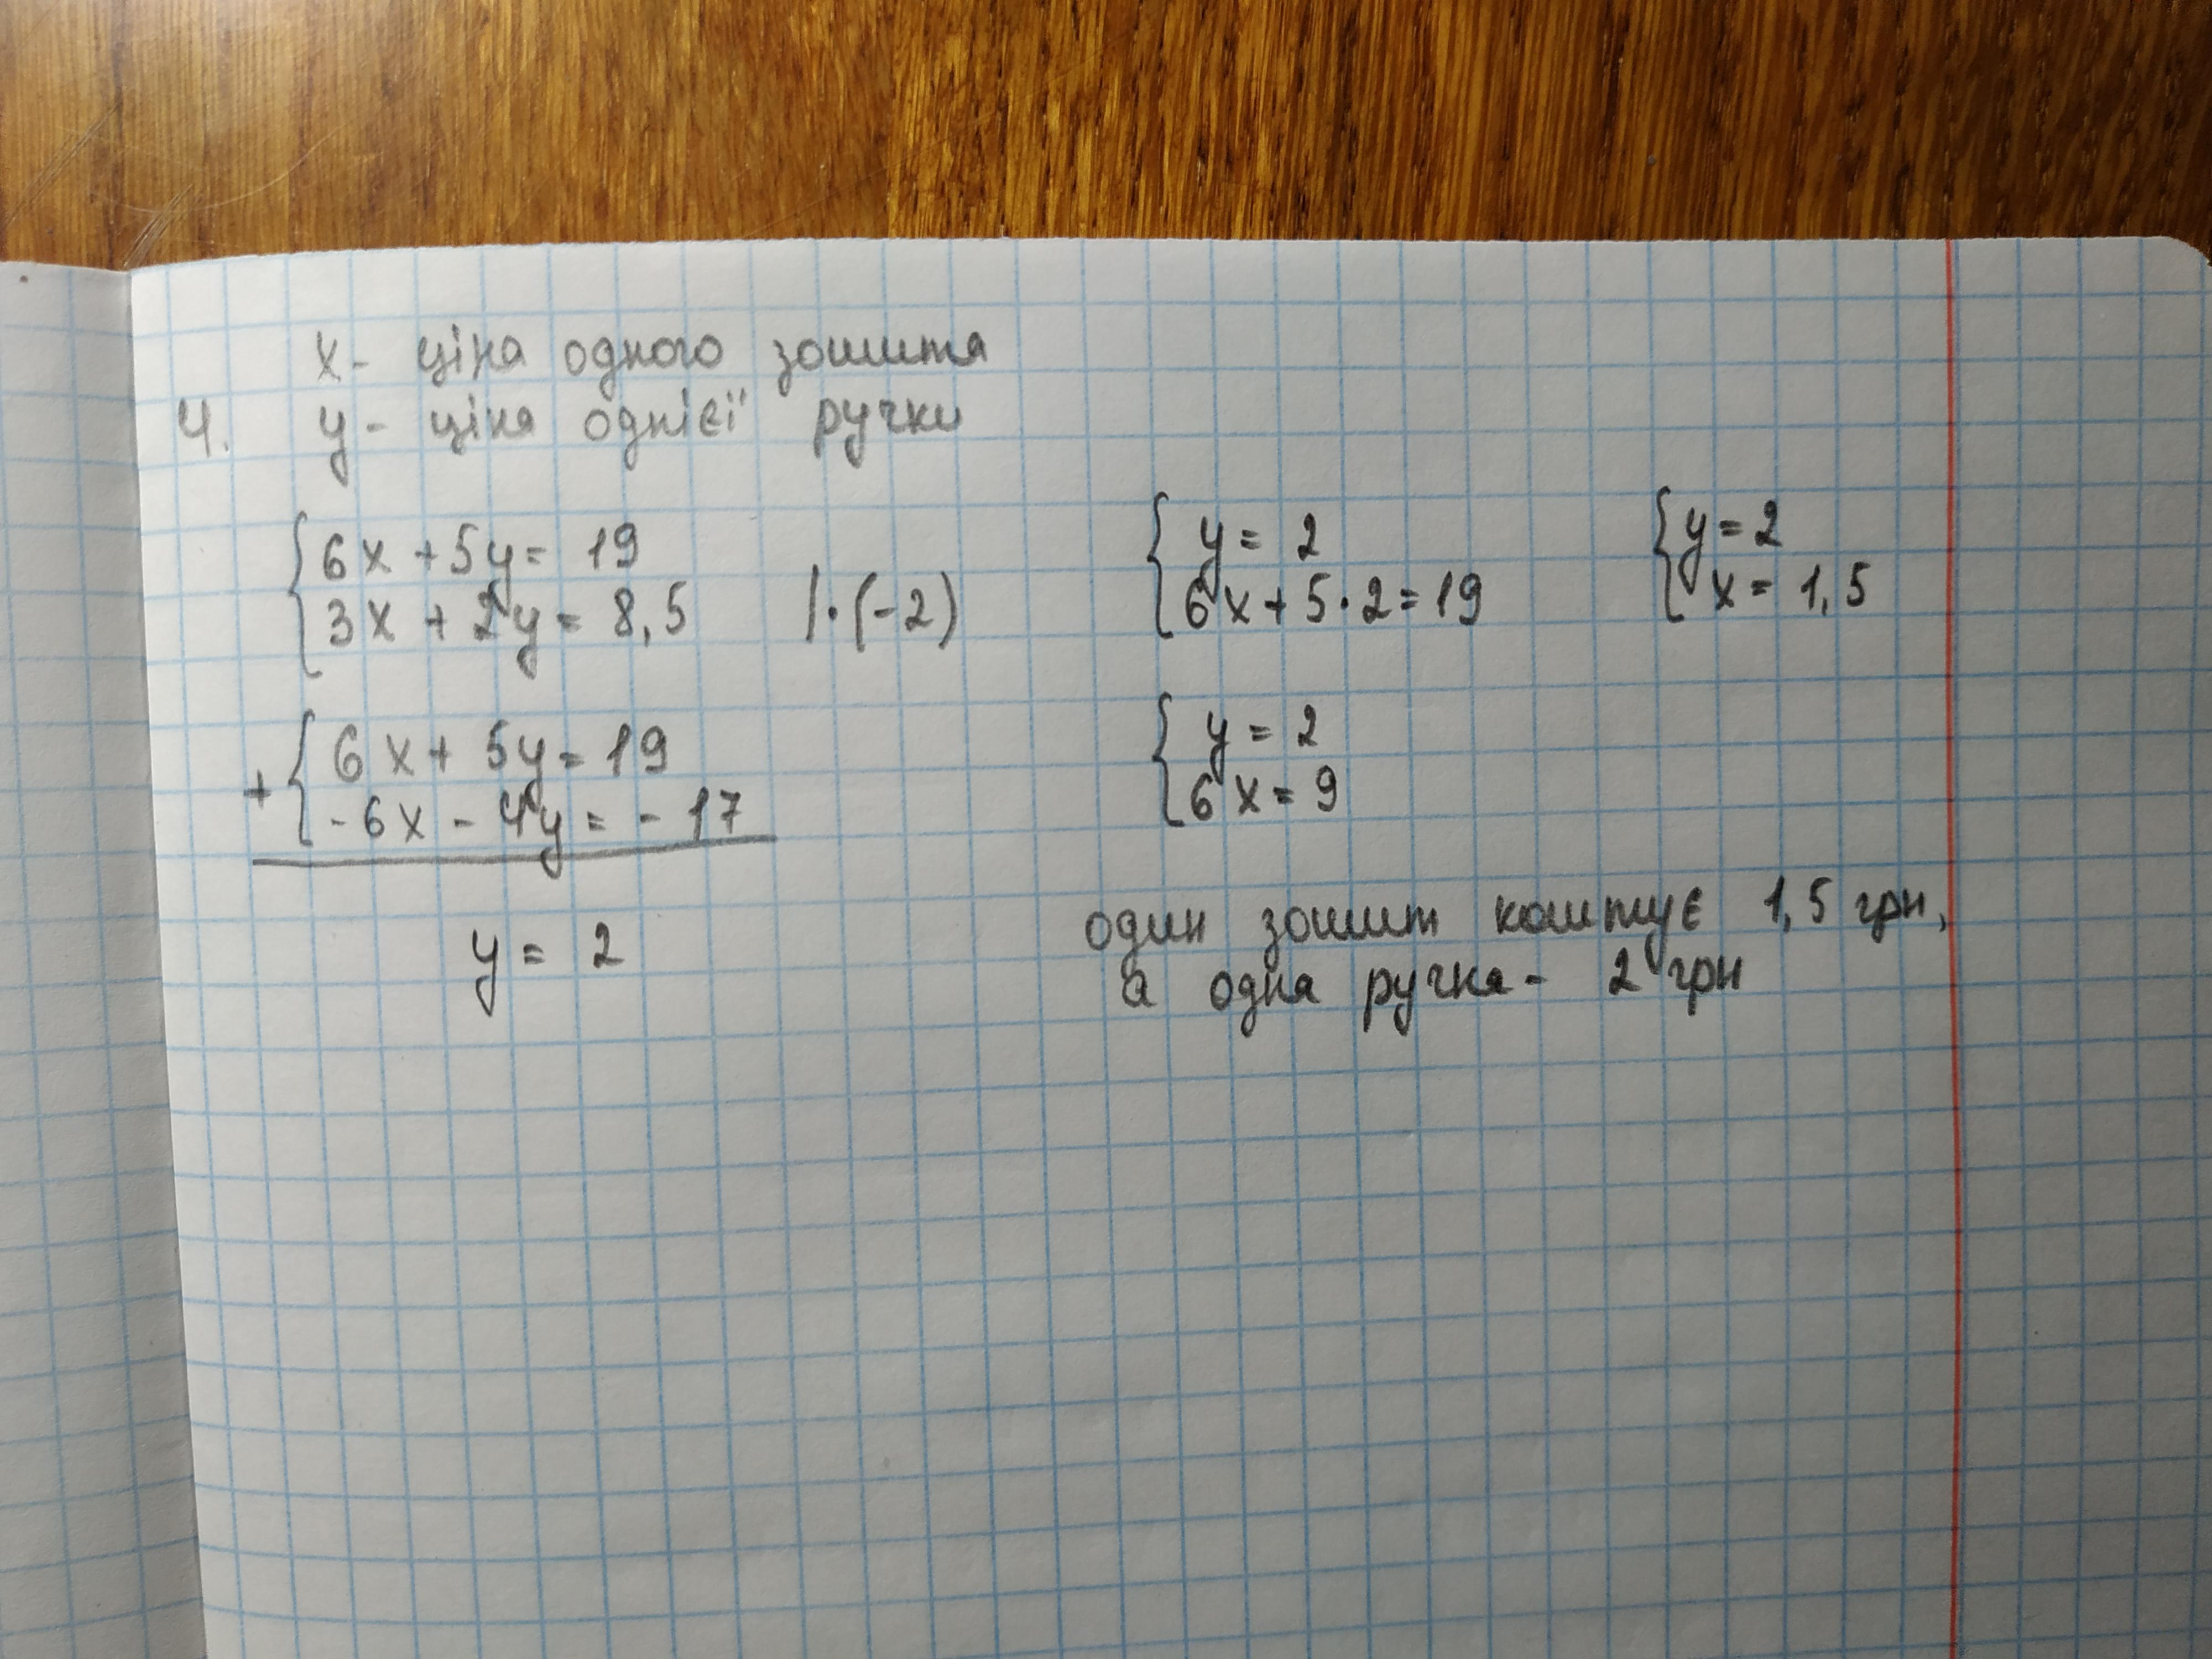 x - ціна одного зошита
4. y - ціна однієї ручки
{ 6x + 5y = 19
3x + 2y = 8,5 | · (-2)
+ { 6x + 5y = 19
-6x - 4y = - 17
y = 2
{ y = 2
6x + 5 · 2 = 19
{ y = 2
6x = 9
{ y = 2
x = 1,5
один зошит коштує 1,5 грн,
а одна ручка - 2 грн